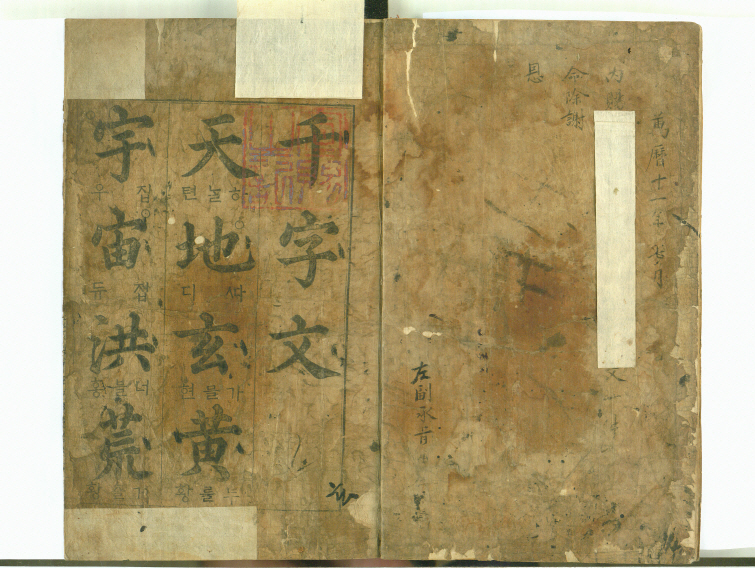 萬曆十一年七月
内賜
命除謝
恩
左副承旨
千字文
天 하늘 텬
地 ᄯᅡ 디
玄 가믈 현
黃 누를 황
宇 집 우
宙 집 듀
洪 너블 홍
荒